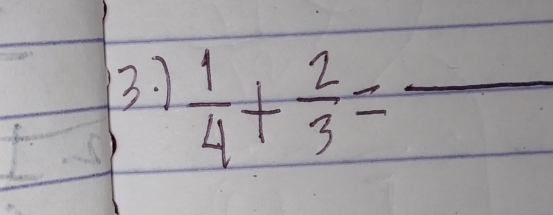 3.) 1/4 + 2/3 = ___